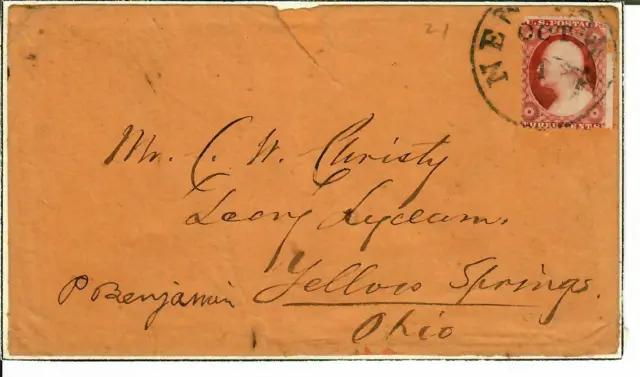 21
NEW
OCT
1
U.S. POSTAGE
THREE CENTS
Mr. C. W. Christy
Secry Lyceum,
Yellow Springs.
P Benjamin
Ohio